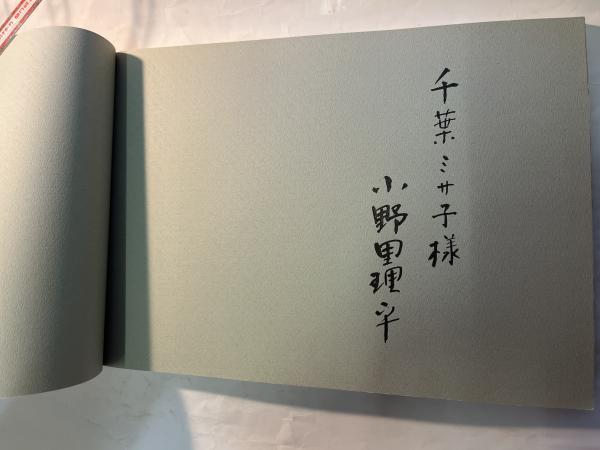 千葉ミサ子様
小野里理平